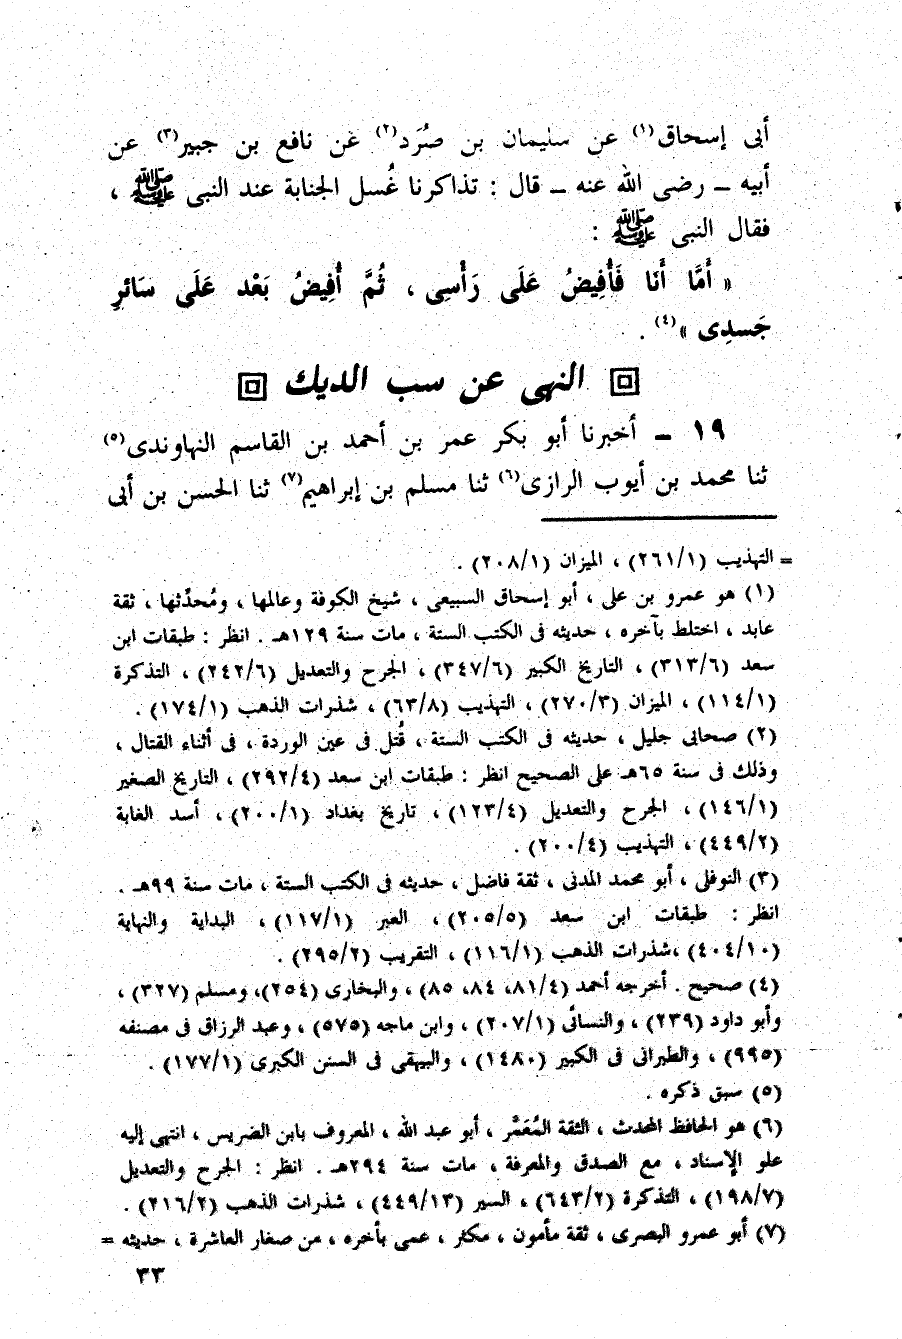 أبى إسحاق(١) عن سليمان بن صُرَد(٢) عن نافع بن جبير(٣) عن
أبيه ــ رضى الله عنه ــ قال : تذاكرنا غُسل الجنابة عند النبى ﷺ ،
فقال النبى ﷺ :
« أَمَّا أَنَا فَأُفِيضُ عَلَى رَأْسِى ، ثُمَّ أُفِيضُ بَعْد عَلَى سَائرِ
جَسدِى »(٤) .
النهى عن سب الديك
١٩ ــ أخبرنا أبو بكر عمر بن أحمد بن القاسم النهاوندى(٥)
ثنا محمد بن أيوب الرازى(٦) ثنا مسلم بن إبراهيم(٧) ثنا الحسن بن أبى
= التهذيب (٢٦١/١) ، الميزان (٢٠٨/١) .
(١) هو عمرو بن على ، أبو إسحاق السبيعى ، شيخ الكوفة وعالمها ، ومُحدِّثها ، ثقة
عابد ، اختلط بآخره ، حديثه فى الكتب الستة ، مات سنة ١٢٩هـ . انظر : طبقات ابن
سعد (٣١٣/٦) ، التاريخ الكبير (٣٤٧/٦) ، الجرح والتعديل (٢٤٢/٦) ، التذكرة
(١١٤/١) ، الميزان (٢٧٠/٣) ، التهذيب (٦٣/٨) ، شذرات الذهب (١٧٤/١) .
(٢) صحابى جليل ، حديثه فى الكتب الستة ، قُتل فى عين الوردة ، فى أثناء القتال ،
وذلك فى سنة ٦٥هـ على الصحيح انظر : طبقات ابن سعد (٢٩٢/٤) ، التاريخ الصغير
(١٤٦/١) ، الجرح والتعديل (١٢٣/٤) ، تاريخ بغداد (٢٠٠/١) ، أسد الغابة
(٤٤٩/٢) ، التهذيب (٢٠٠/٤) .
(٣) النوفلى ، أبو محمد المدنى ، ثقة فاضل ، حديثه فى الكتب الستة ، مات سنة ٩٩هـ .
انظر : طبقات ابن سعد (٢٠٥/٥) ، العبر (١١٧/١) ، البداية والنهاية
(٤٠٤/١٠) ،شذرات الذهب (١١٦/١) ، التقريب (٢٩٥/٢) .
(٤) صحيح . أخرجه أحمد (٨١/٤، ٨٤، ٨٥) ، والبخارى (٢٥٤)، ومسلم (٣٢٧) ،
وأبو داود (٢٣٩) ، والنسائى (٢٠٧/١) ، وابن ماجه (٥٧٥) ، وعبد الرزاق فى مصنفه
(٩٩٥) ، والطبرانى فى الكبير (١٤٨٠) ، والبيهقى فى السنن الكبرى (١٧٧/١) .
(٥) سبق ذكره .
(٦) هو الحافظ المحدث ، الثقة المُعَمَّر ، أبو عبد الله ، المعروف بابن الضريس ، انتهى إليه
علو الإسناد ، مع الصدق والمعرفة ، مات سنة ٢٩٤هـ . انظر : الجرح والتعديل
(١٩٨/٧) ، التذكرة (٦٤٣/٢) ، السير (٤٤٩/١٣) ، شذرات الذهب (٢١٦/٢) .
(٧) أبو عمرو البصرى ، ثقة مأمون ، مكثر ، عمى بأخره ، من صغار العاشرة ، حديثه =
٣٣